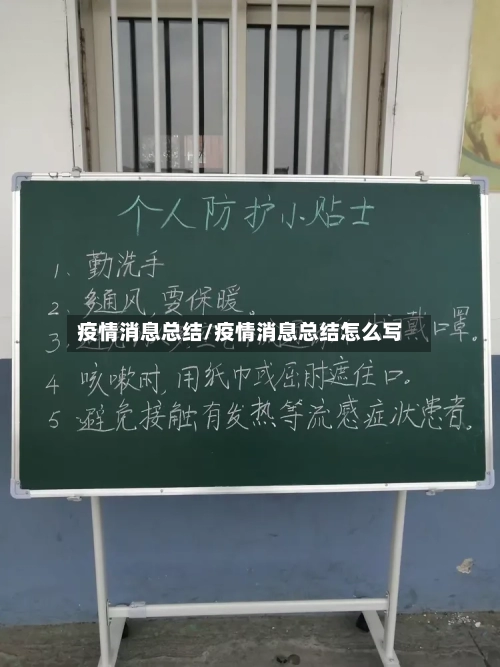 个人防护小贴士
1、勤洗手
2、多通风,要保暖。
疫情消息总结/疫情消息总结怎么写
3、戴口罩。
4 咳嗽时,用纸巾或屈肘遮住口。
5 避免接触有发热等流感症状患者。